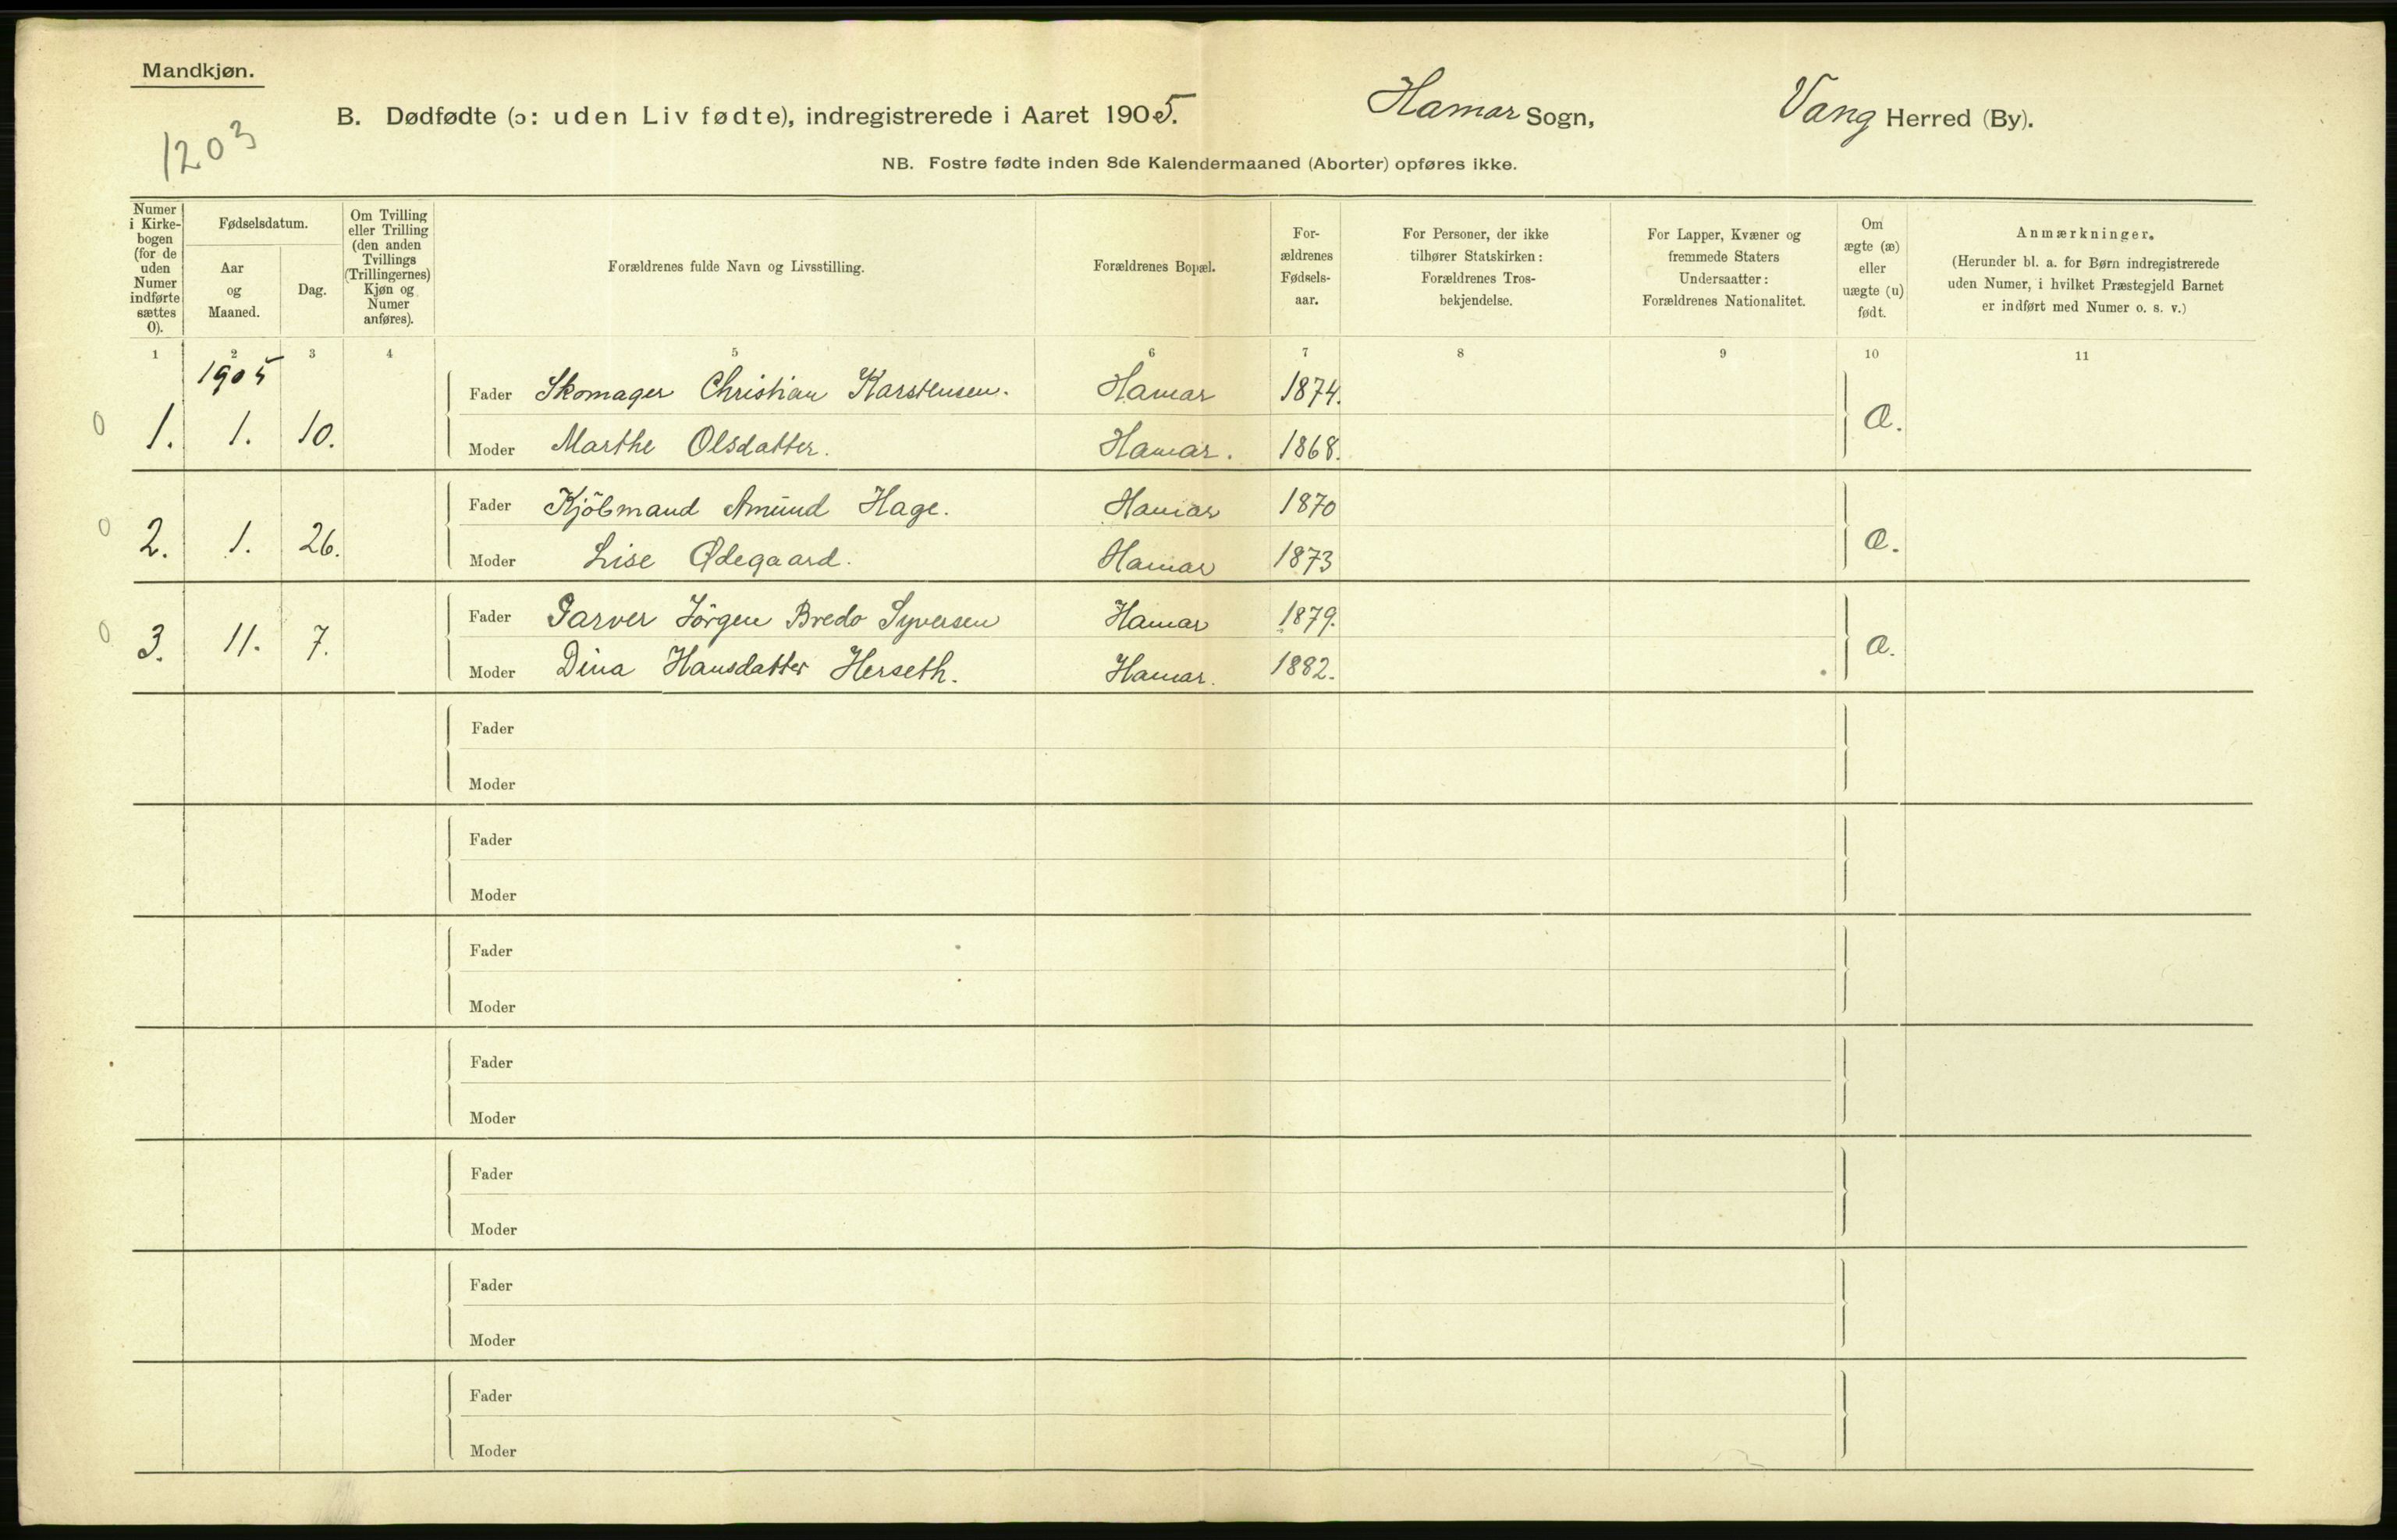 Mandkjøn.
B. Dødfødte (ɔ: uden Liv fødte), indregistrerede i Aaret 1905. Hamar Sogn, Vang Herred (By).
1203
NB. Fostre fødte inden 8de Kalendermaaned (Aborter) opføres ikke.
Numer i Kirke-bogen (for de uden Numer indførte sættes 0).
Fødselsdatum.
Aar og Maaned.
Dag.
Om Tvilling eller Trilling (den anden Tvillings (Trillingernes) Kjøn og Numer anføres).
Forældrenes fulde Navn og Livsstilling.
Forældrenes Bopæl.
For-ældrenes Fødsels-aar.
For Personer, der ikke tilhører Statskirken: Forældrenes Tros-bekjendelse.
For Lapper, Kvæner og fremmede Staters Undersaatter: Forældrenes Nationalitet.
Om ægte (æ) eller uægte (u) født.
Anmærkninger. (Herunder bl. a. for Børn indregistrerede uden Numer, i hvilket Præstegjeld Barnet er indført med Numer o. s. v.)
1 2 3 4 5 6 7 8 9 10 11
1905
Fader Skomager Christian Karstensen. Hamar 1874.
0 1. 1. 10. Æ.
Moder Marthe Olsdatter. Hamar. 1868.
Fader Kjöbmand Amund Hage. Hamar 1870
0 2. 1. 26. Æ.
Moder Lise Ødegaard. Hamar 1873
Fader Garver Jörgen Bredo Syversen Hamar 1879.
0 3. 11. 7. Æ.
Moder Dina Hansdatter Herseth. Hamar. 1882.
Fader
Moder
Fader
Moder
Fader
Moder
Fader
Moder
Fader
Moder
Fader
Moder
Fader
Moder